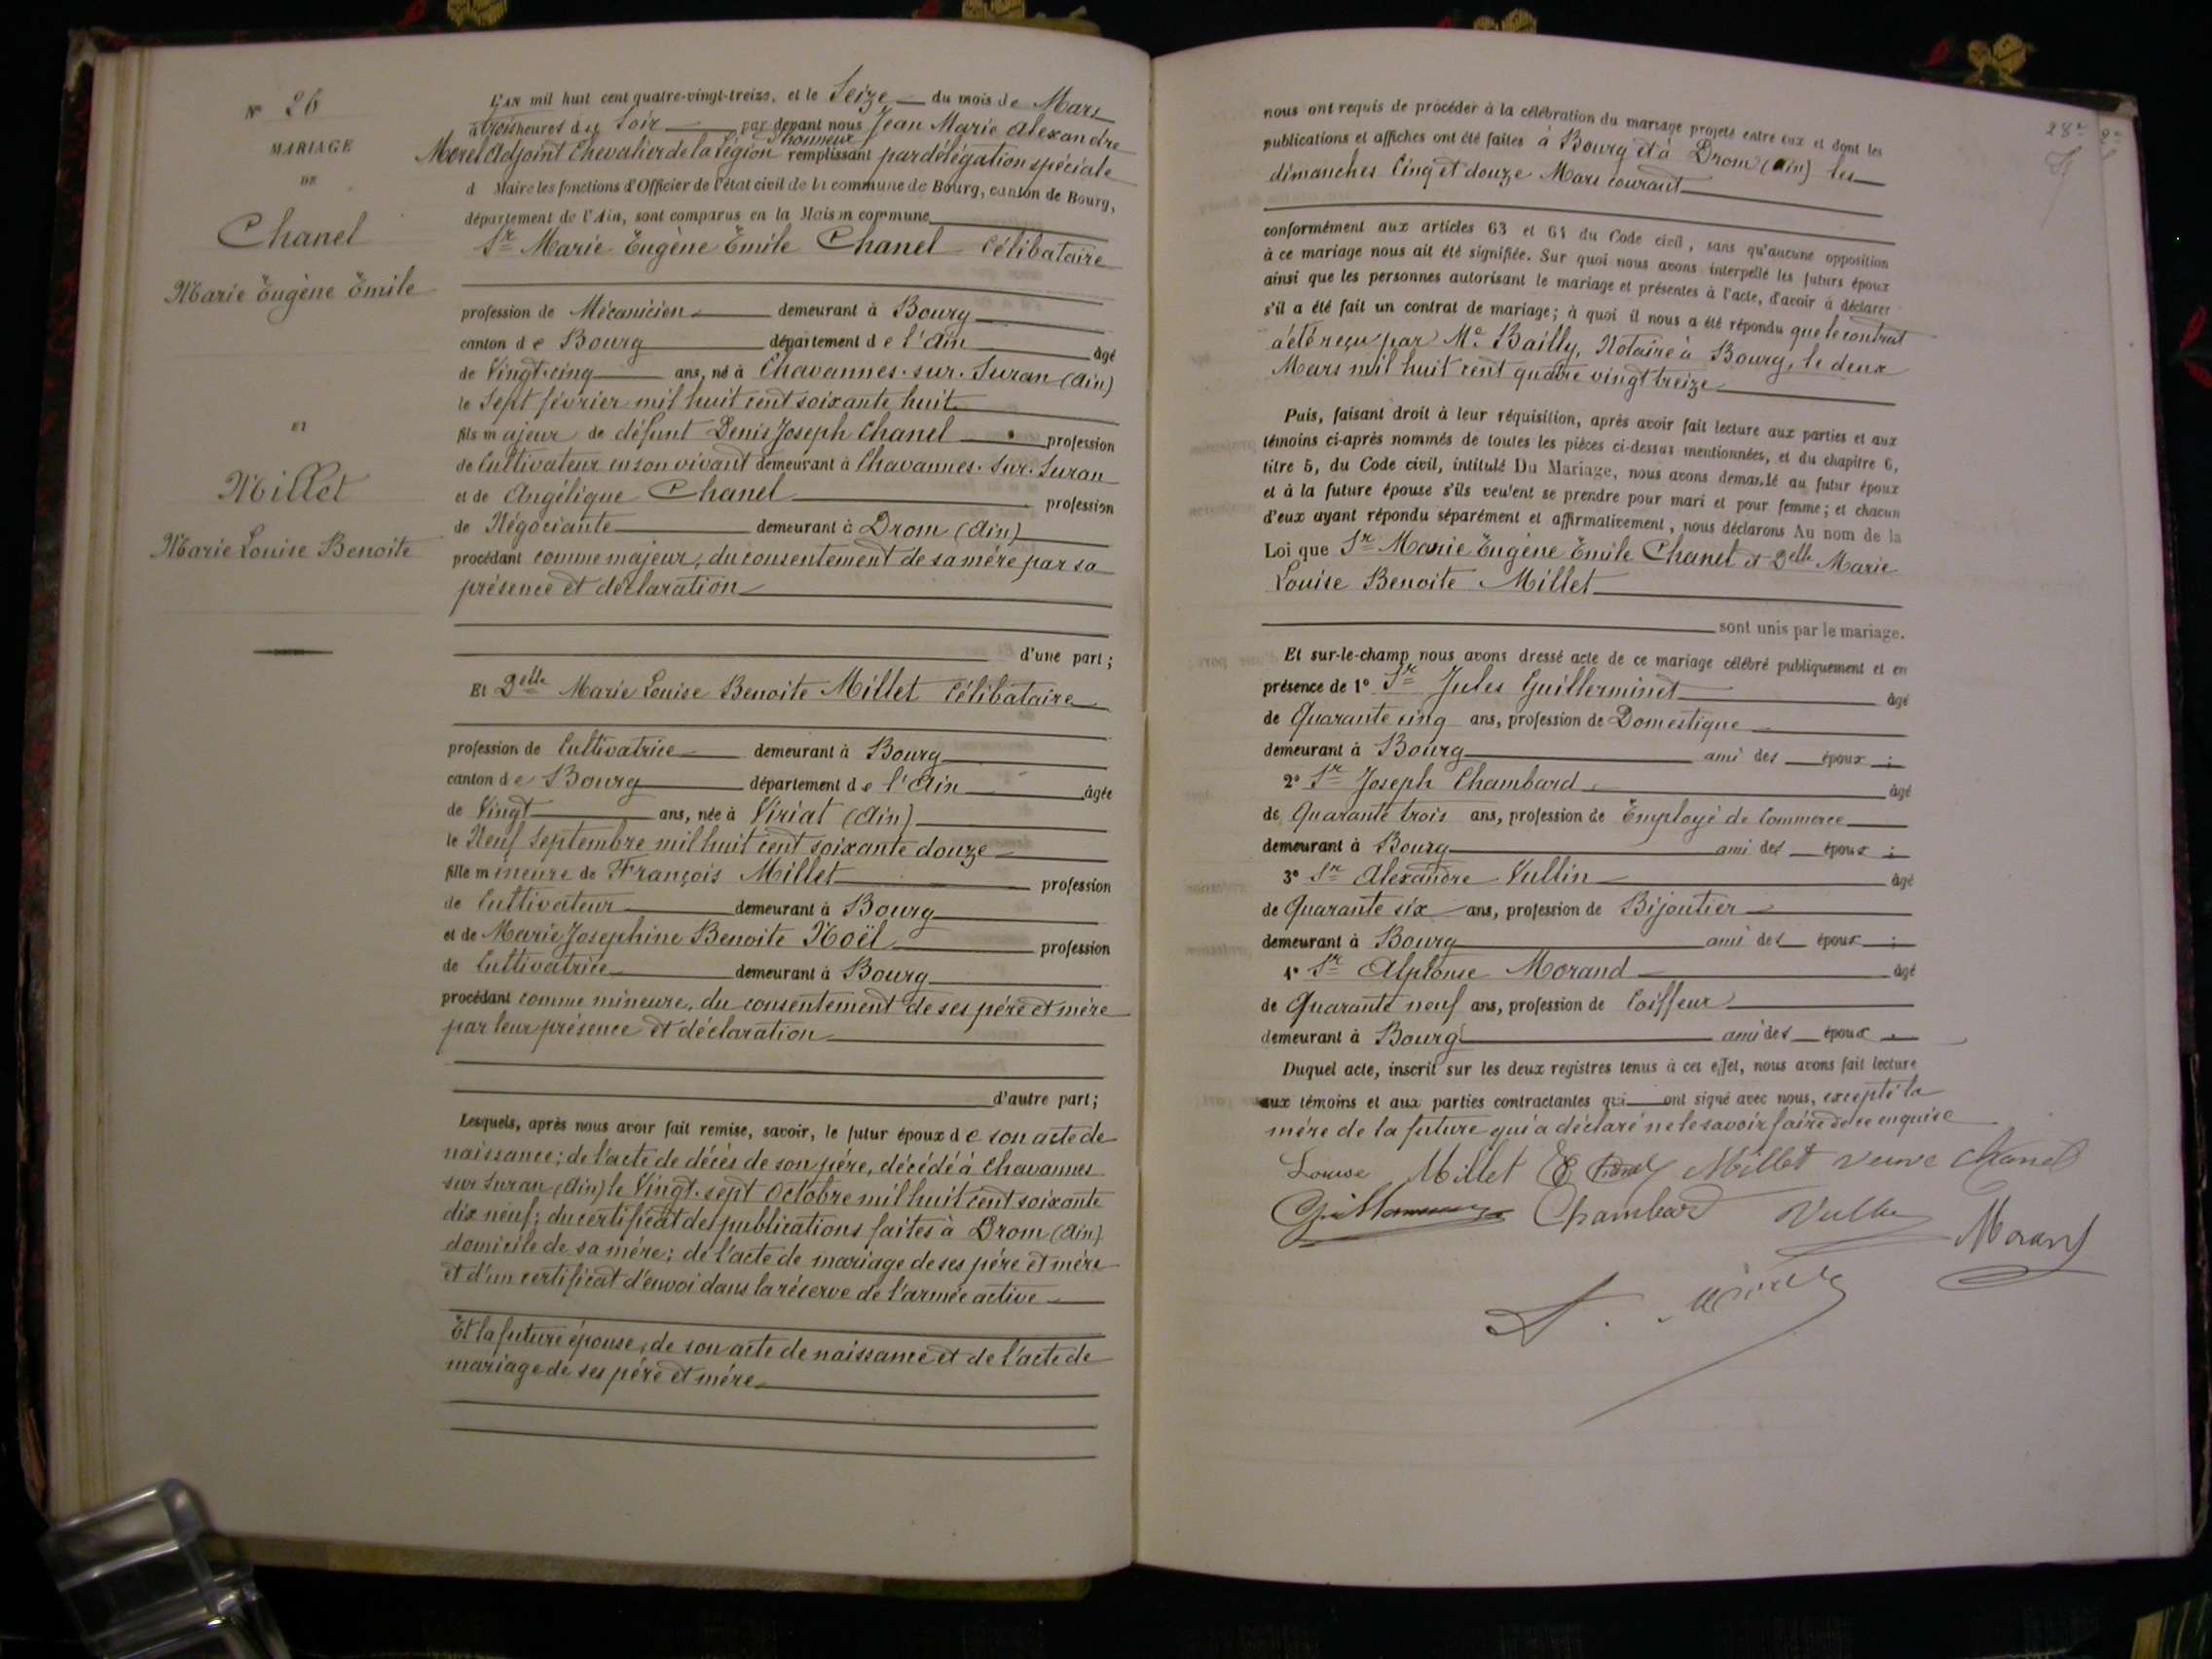 Nº 26
MARIAGE
DE
Chanel
Marie Eugène Emile
ET
Millet
Marie Louise Benoite
L'AN mil huit cent quatre-vingt-treize, et le Seize du mois de Mars
à trois heures du Soir par devant nous Jean Marie Alexandre
d'honneur
Morel Adjoint Chevalier de la Légion remplissant par délégation spéciale
d Maire les fonctions d'Officier de l'état civil de la commune de Bourg, canton de Bourg,
département de l'Ain, sont comparus en la Maison commune
Sr Marie Eugène Emile Chanel Célibataire
profession de Mécanicien demeurant à Bourg
canton de Bourg département de l'Ain âgé
de Vingt-cinq ans, né à Chavannes-sur-Suran (Ain)
le Sept février mil huit cent soixante huit
fils majeur de défunt Denis Joseph Chanel profession
de Cultivateur en son vivant demeurant à Chavannes-Sur-Suran
et de Angélique Chanel profession
de Négociante demeurant à Drom (Ain)
procédant comme majeur, du consentement de sa mère par sa
présence et déclaration
d'une part;
Et Delle Marie Louise Benoite Millet Célibataire
profession de Cultivatrice demeurant à Bourg
canton de Bourg département de l'Ain âgée
de Vingt ans, née à Viriat (Ain)
le Neuf Septembre mil huit cent soixante douze
fille mineure de François Millet profession
de Cultivateur demeurant à Bourg
et de Marie Josephine Benoite Noël profession
de Cultivatrice demeurant à Bourg
procédant comme mineure, du consentement de ses père et mère
par leur présence et déclaration
d'autre part;
Lesquels, après nous avoir fait remise, savoir, le futur époux de son acte de
naissance; de l'acte de décès de son père, décédé à Chavannes
sur Suran (Ain) le Vingt-sept Octobre mil huit cent soixante
dix neuf; du certificat des publications faites à Drom (Ain)
domicile de sa mère; de l'acte de mariage de ses père et mère
et d'un certificat d'envoi dans la réserve de l'armée active
Et la future épouse, de son acte de naissance et de l'acte de
mariage de ses père et mère
28e 2e
nous ont requis de procéder à la célébration du mariage projeté entre eux et dont les
publications et affiches ont été faites à Bourg et à Drom (Ain) les
dimanches Cinq et douze Mars courant
conformément aux articles 63 et 64 du Code civil, sans qu'aucune opposition
à ce mariage nous ait été signifiée. Sur quoi nous avons interpellé les futurs époux
ainsi que les personnes autorisant le mariage et présentes à l'acte, d'avoir à déclarer
s'il a été fait un contrat de mariage; à quoi il nous a été répondu que le contrat
a été reçu par Me Bailly, Notaire à Bourg, le deux
Mars mil huit cent quatre vingt treize
Puis, faisant droit à leur réquisition, après avoir fait lecture aux parties et aux
témoins ci-après nommés de toutes les pièces ci-dessus mentionnées, et du chapitre 6,
titre 5, du Code civil, intitulé Du Mariage, nous avons demandé au futur époux
et à la future épouse s'ils veulent se prendre pour mari et pour femme; et chacun
d'eux ayant répondu séparément et affirmativement, nous déclarons Au nom de la
Loi que Sr Marie Eugène Emile Chanel et Delle Marie
Louise Benoite Millet
sont unis par le mariage.
Et sur-le-champ nous avons dressé acte de ce mariage célébré publiquement et en
présence de 1º Sr Jules Guillerminet âgé
de Quarante cinq ans, profession de Domestique
demeurant à Bourg ami des époux;
2º Sr Joseph Chambard âgé
de Quarante trois ans, profession de Employé de Commerce
demeurant à Bourg ami des époux;
3º Sr Alexandre Vullin âgé
de Quarante six ans, profession de Bijoutier
demeurant à Bourg ami des époux;
4º Sr Alphonse Morand âgé
de Quarante neuf ans, profession de Coiffeur
demeurant à Bourg ami des époux.
Duquel acte, inscrit sur les deux registres tenus à cet effet, nous avons fait lecture
aux témoins et aux parties contractantes qui ont signé avec nous, excepté la
mère de la future qui a déclaré ne le savoir faire de ce enquise
Louise Millet E Chanel Millet veuve Chanel
Guillerminet Chambard Vullin Morand
A. Morel